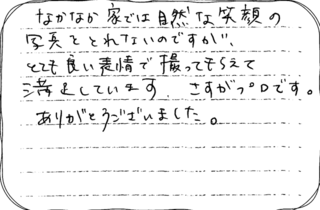 なかなか家では自然な笑顔の
写真をとれないのですが、
とても良い表情で撮ってもらえて
満足しています。さすがプロです。
ありがとうございました。